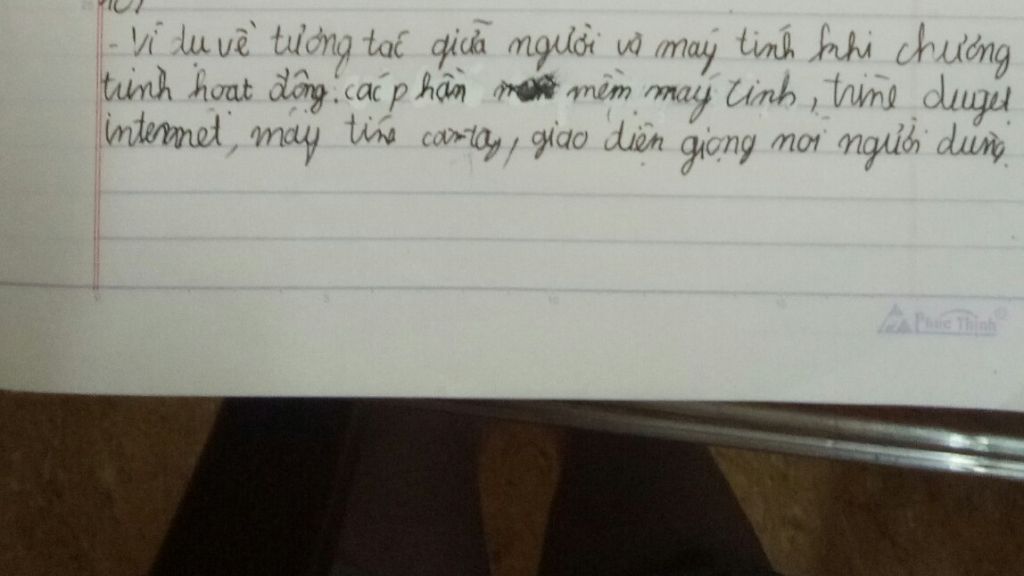 - Ví dụ về tương tác giữa người và máy tính khi chương
trình hoạt động: các phần mềm máy tính, trình duyệt
internet, máy tính cầm tay, giao diện giọng nói người dùng.
Phúc Thịnh